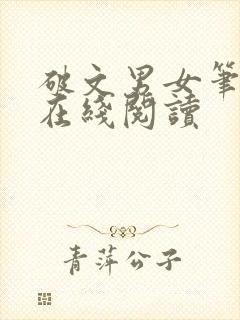 破文男女筆
在綫閱讀
青萍公子